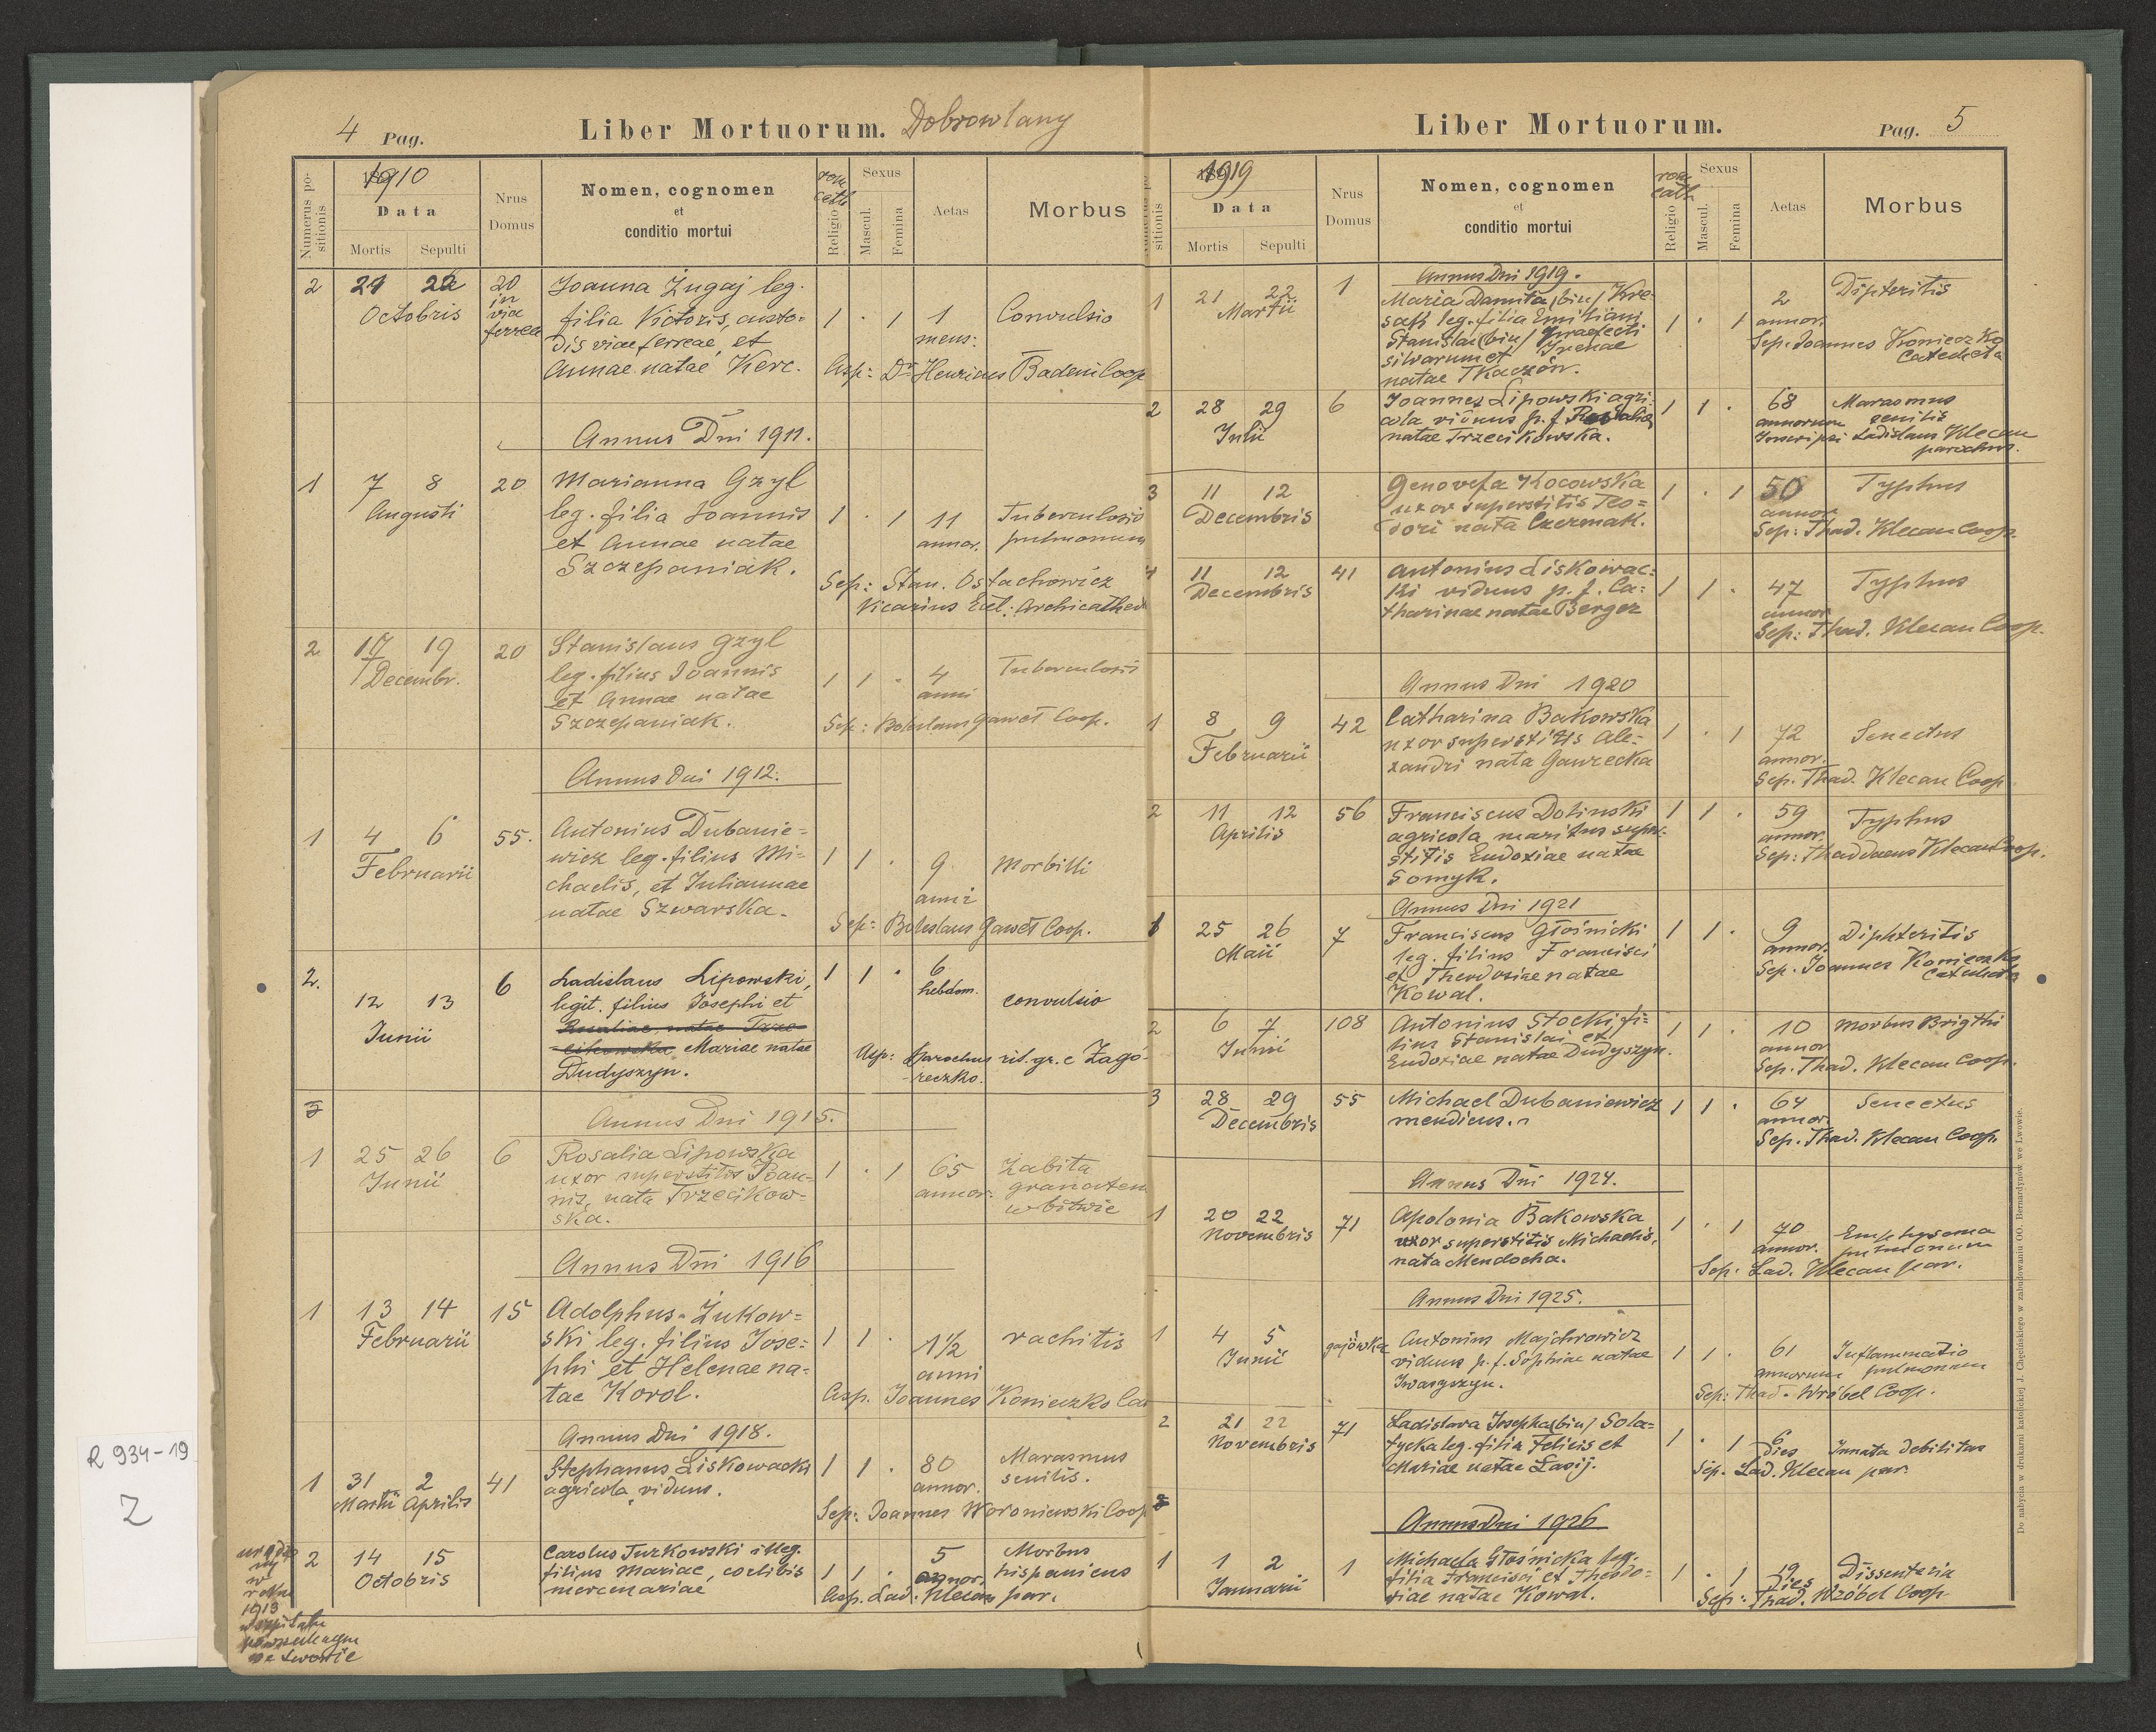 4 Pag.
Liber Mortuorum. Dobrowlany
Numerus positionis
1910
Data
Mortis Sepulti
Nrus Domus
Nomen, cognomen
et
conditio mortui
rom cath
Religio
Sexus
Mascul.
Femina
Aetas
Morbus
2 21 22 20 Joanna Żugaj leg.
Octobris in via ferrea filia Victoris, custo= 1 · 1 1 Convulsio
dis viae ferreae, et mens:
Annae natae Kerc. Asp: Dr Henricus Badeni Coop
Annus Dni 1911.
1 7 8 20 Marianna Gzyl
Augusti leg. filia Joannis 1 · 1 11 Tuberculosis
et Annae natae annor. pulmonum
Szczepaniak.
Sep: Stan. Ostachowicz
Vicarius Eccl: Archicathed
2 17 19 20 Stanislaus Gzyl
Decembr. leg. filius Joannis 1 1 · 4 Tuberculosis
et Annae natae anni
Szczepaniak. Sep: Boleslaus Gaweł Coop.
Annus Dni 1912.
1 4 6 55. Antonius Dubanie=
Februarii wicz leg. filius Mi= 1 1 · 9 Morbilli
chaelis, et Juliannae anni
natae Szwarska.
Sep: Boleslaus Gaweł Coop.
2. 12 13 6 Ladislaus Lipowski, 1 1 · 6
Junii legit. filius Josephi et hebdom. convulsio
Rosaliae, natae Trze-
cikowska Mariae natae Asp: parochus rit. gr. c Zagó-
Dudyszyn. reczko.
3
Annus Dni 1915.
1 25 26 6 Rosalia Lipowska
Junii uxor superstitis Joan= 1 · 1 65 Zabita
nis, nata Trzecikow= annor: granatem
ska. w bitwie
Annus Dni 1916
1 13 14 15 Adolphus Żukow=
Februarii ski leg. filius Jose= 1 1 · 1½ rachitis
phi et Helenae na= anni
tae Korol. Asp. Joannes Konieczko Cat
Annus Dni 1918.
1 31 2 41 Stephanus Liskowacki 1 1 · 80 Marasmus
Martii Aprilis agricola, viduus. annor. senilis.
Sep: Joannes Woroniewski Coop
2 14 15 Carolus Turkowski illeg. 5 Morbus
Octobris filius Mariae, coelibis 1 1 · annor. hispanicus
mercenariae Asp. Lad. Klecan par.
urodzo
ny
w
roku
1913
w szpitalu
powszechnym
we Lwowie
Liber Mortuorum.
Pag. 5
Numerus positionis
1919
Data
Mortis Sepulti
Nrus Domus
Nomen, cognomen
et
conditio mortui
rom cath
Religio
Sexus
Mascul.
Femina
Aetas
Morbus
Annus Dni 1919.
1 21 22 1 Maria Danuta /bin/ Kre- 2 Dipteritis
Martii sak leg. filia Emiliani 1 · 1 annor.
Stanislai /bin/ praefecti Sep. Joannes Konieczko
silvarum et Irenae Catecheta
natae Tkaczów.
2 28 29 6 Joannes Lipowski agri= 1 1 · 68 Marasmus
Julii cola viduus p. f. Rosalia annorum senilis
natae Trzecikowska. Inscripsi Ladislaus Klecan
parochus.
3 11 12 Genovefa Kocowska 1 · 1 50 Typhus
Decembris uxor superstitis Teo= annor
dori nata Czermak. Sep: Thad. Klecan Coop.
4 11 12 41 Antonius Liskowac= 47 Typhus
Decembris ki viduus p. f. Ca= 1 1 · annor
tharinae natae Berger Sep: Thad. Klecan Coop.
Annus Dni 1920
1 8 9 42 Catharina Bakowska 1 · 1 72 Senectus
Februarii uxor superstitis Ale= annor.
xandri nata Gawrecka Sep. Thad. Klecan Coop
2 11 12 56 Franciscus Dolinski 1 1 · 59 Typhus
Aprilis agricola maritus super= annor.
stitis Eudoxiae natae Sep: Thaddaeus Klecan Coop.
Somyk.
Annus Dni 1921
1 25 26 7 Franciscus Głośnicki 1 1 · 9 Diphteritis
Maii leg. filius Francisci annor.
et Theodosiae natae Sep. Joannes Konieczko
Kowal. Catecheta
2 6 7 108 Antonius Stocki fi= 1 1 · 10 Morbus Brigthi
Junii lius Stanislai et annor
Eudoxiae natae Dudyszyn. Sep. Thad. Klecan Coop.
3 28 29 55 Michael Dubaniewicz 1 1 · 64 Senectus
Decembris mendicus. annor.
Sep. Thad. Klecan Coop.
Annus Dni 1924.
1 20 22 71 Apolonia Bakowska 1 · 1 70 Emphysema
Novembris uxor superstitis Michaelis, annor. pulmonum
nata Mendocha. Sep. Lad. Klecan par.
Annus Dni 1925.
1 4 5 gajówka Antonius Majchrowicz 61 Inflammatio
Junii viduus p. f. Sophiae natae 1 1 · annorum pulmonum
Iwaszyn. Sep: Thad. Wróbel Coop.
2 21 22 71 Ladislava Josepha /bin/ Sola= 6
Novembris tycka leg. filia Felicis et 1 · 1 dies Innata debilitas
Mariae natae Lasij. Sep. Lad. Klecan par.
3
Annus Dni 1926
1 1 2 1 Michaela Głośnicka leg. 19 Dissenteria
Januarii filia Francisci et Theodo= 1 · 1 dies
siae natae Kowal. Sep: Thad. Wróbel Coop
Do nabycia w drukarni katolickiej J. Chęcińskiego w zabudowaniu OO. Bernardynów we Lwowie.
R 934-19
Z